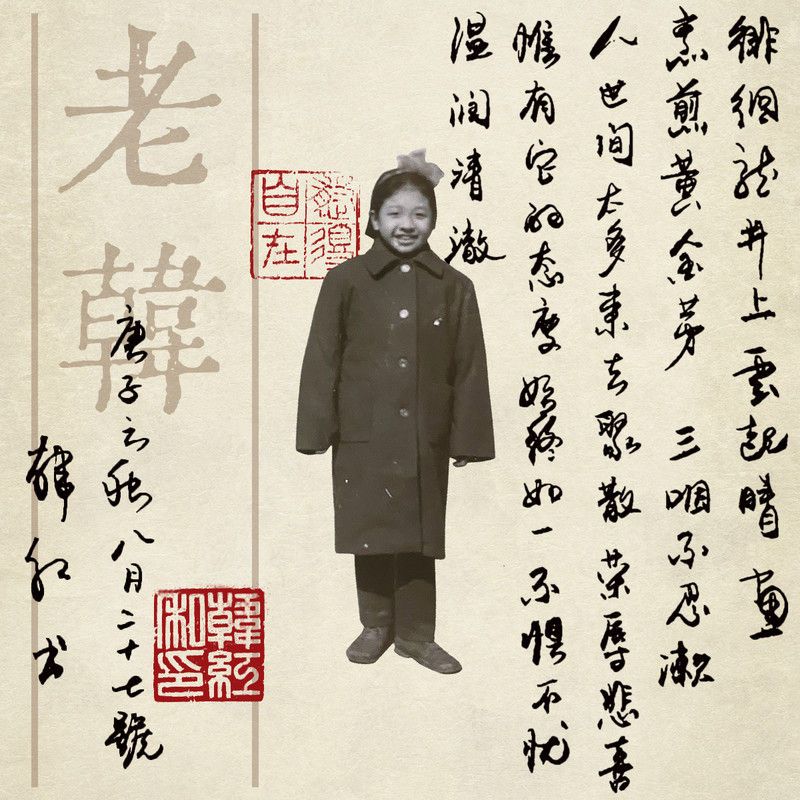 徘徊龍井上雲起晴畫
烹煎黃金芽 三咽不忍漱
人世间太多来去聚散荣辱悲喜
惟有它的态度始终如一不惧不忧
温润清澈
自在
老韓
庚子之秋八月二十七號
韩红书
韓紅私印